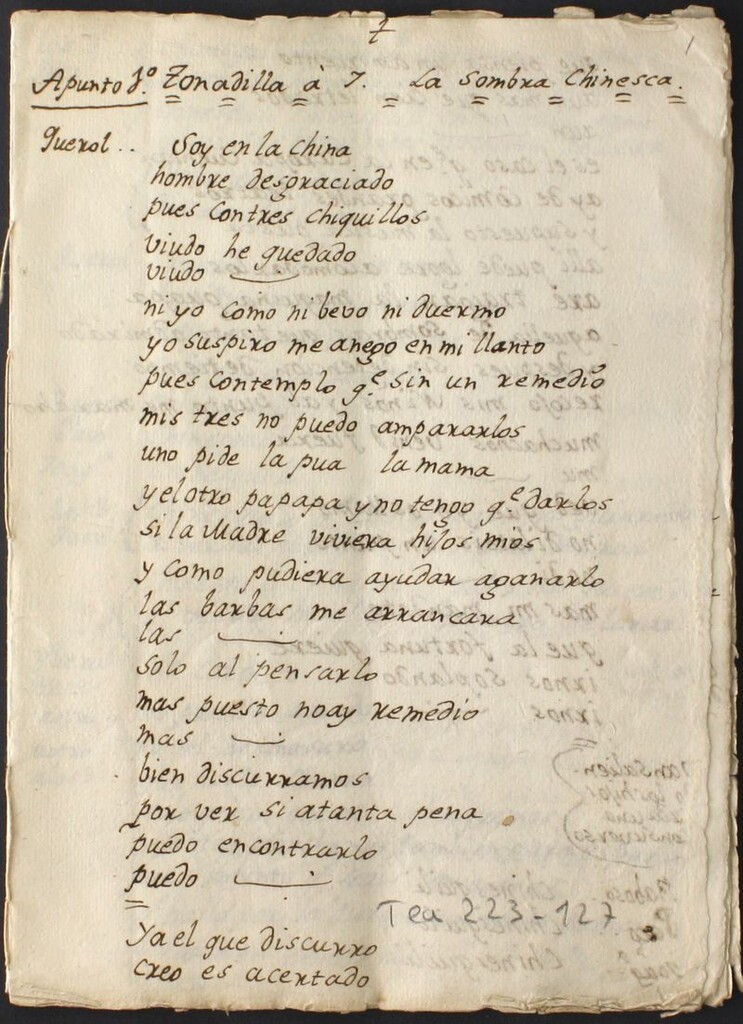 1
Apunto 1º. Tonadilla à 7. La Sombra Chinesca.
Querol.. Soy en la China
hombre desgraciado
pues con tres chiquillos
viudo he quedado
viudo
ni yo como ni bevo ni duermo
yo suspiro me anego en mi llanto
pues contemplo q.e sin un remedio
mis tres no puedo ampararlos
uno pide la pua la mama
y el otro papapa y no tengo q.e darlos
si la Madre viviera hijos mios
y como pudiera ayudar aganarlo
las barbas me arrancara
las
solo al pensarlo
mas puesto noay remedio
mas
bien discurramos
por ver si atanta pena
puedo encontrarlo
puedo
Tea 223-127
Ya el que discurro
creo es acertado